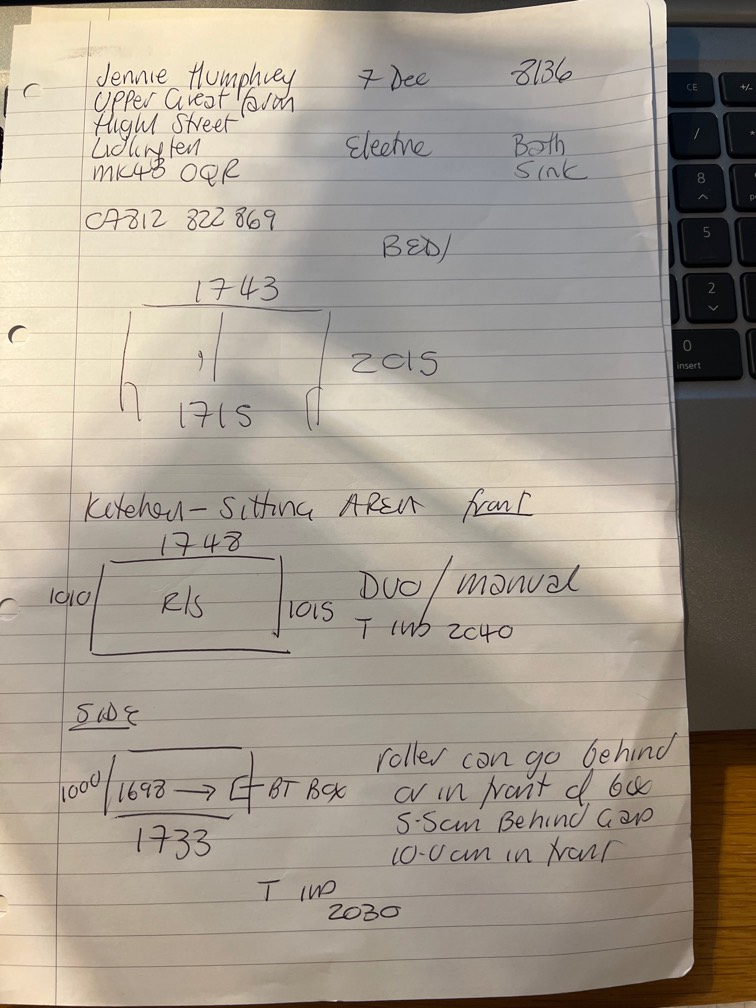 Jennie Humphrey 7 Dec 8136
Upper Great Farm
High Street
Lidlington Electric Both
MK43 0QR Sink
07812 822 869
BED/
1743
2015
1715
Kitchen - Sitting AREA front
1748
1010 R/S 1015 DUO/manual
T IND 2040
SIDE
roller can go behind
1000 1698 → BT BOX or in front of box
1733 5.5cm Behind Gap
10.0cm in front
T IND
2030